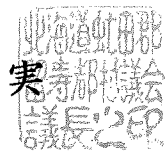 北海道虻田郡
留寿都村議会
議長之印
実